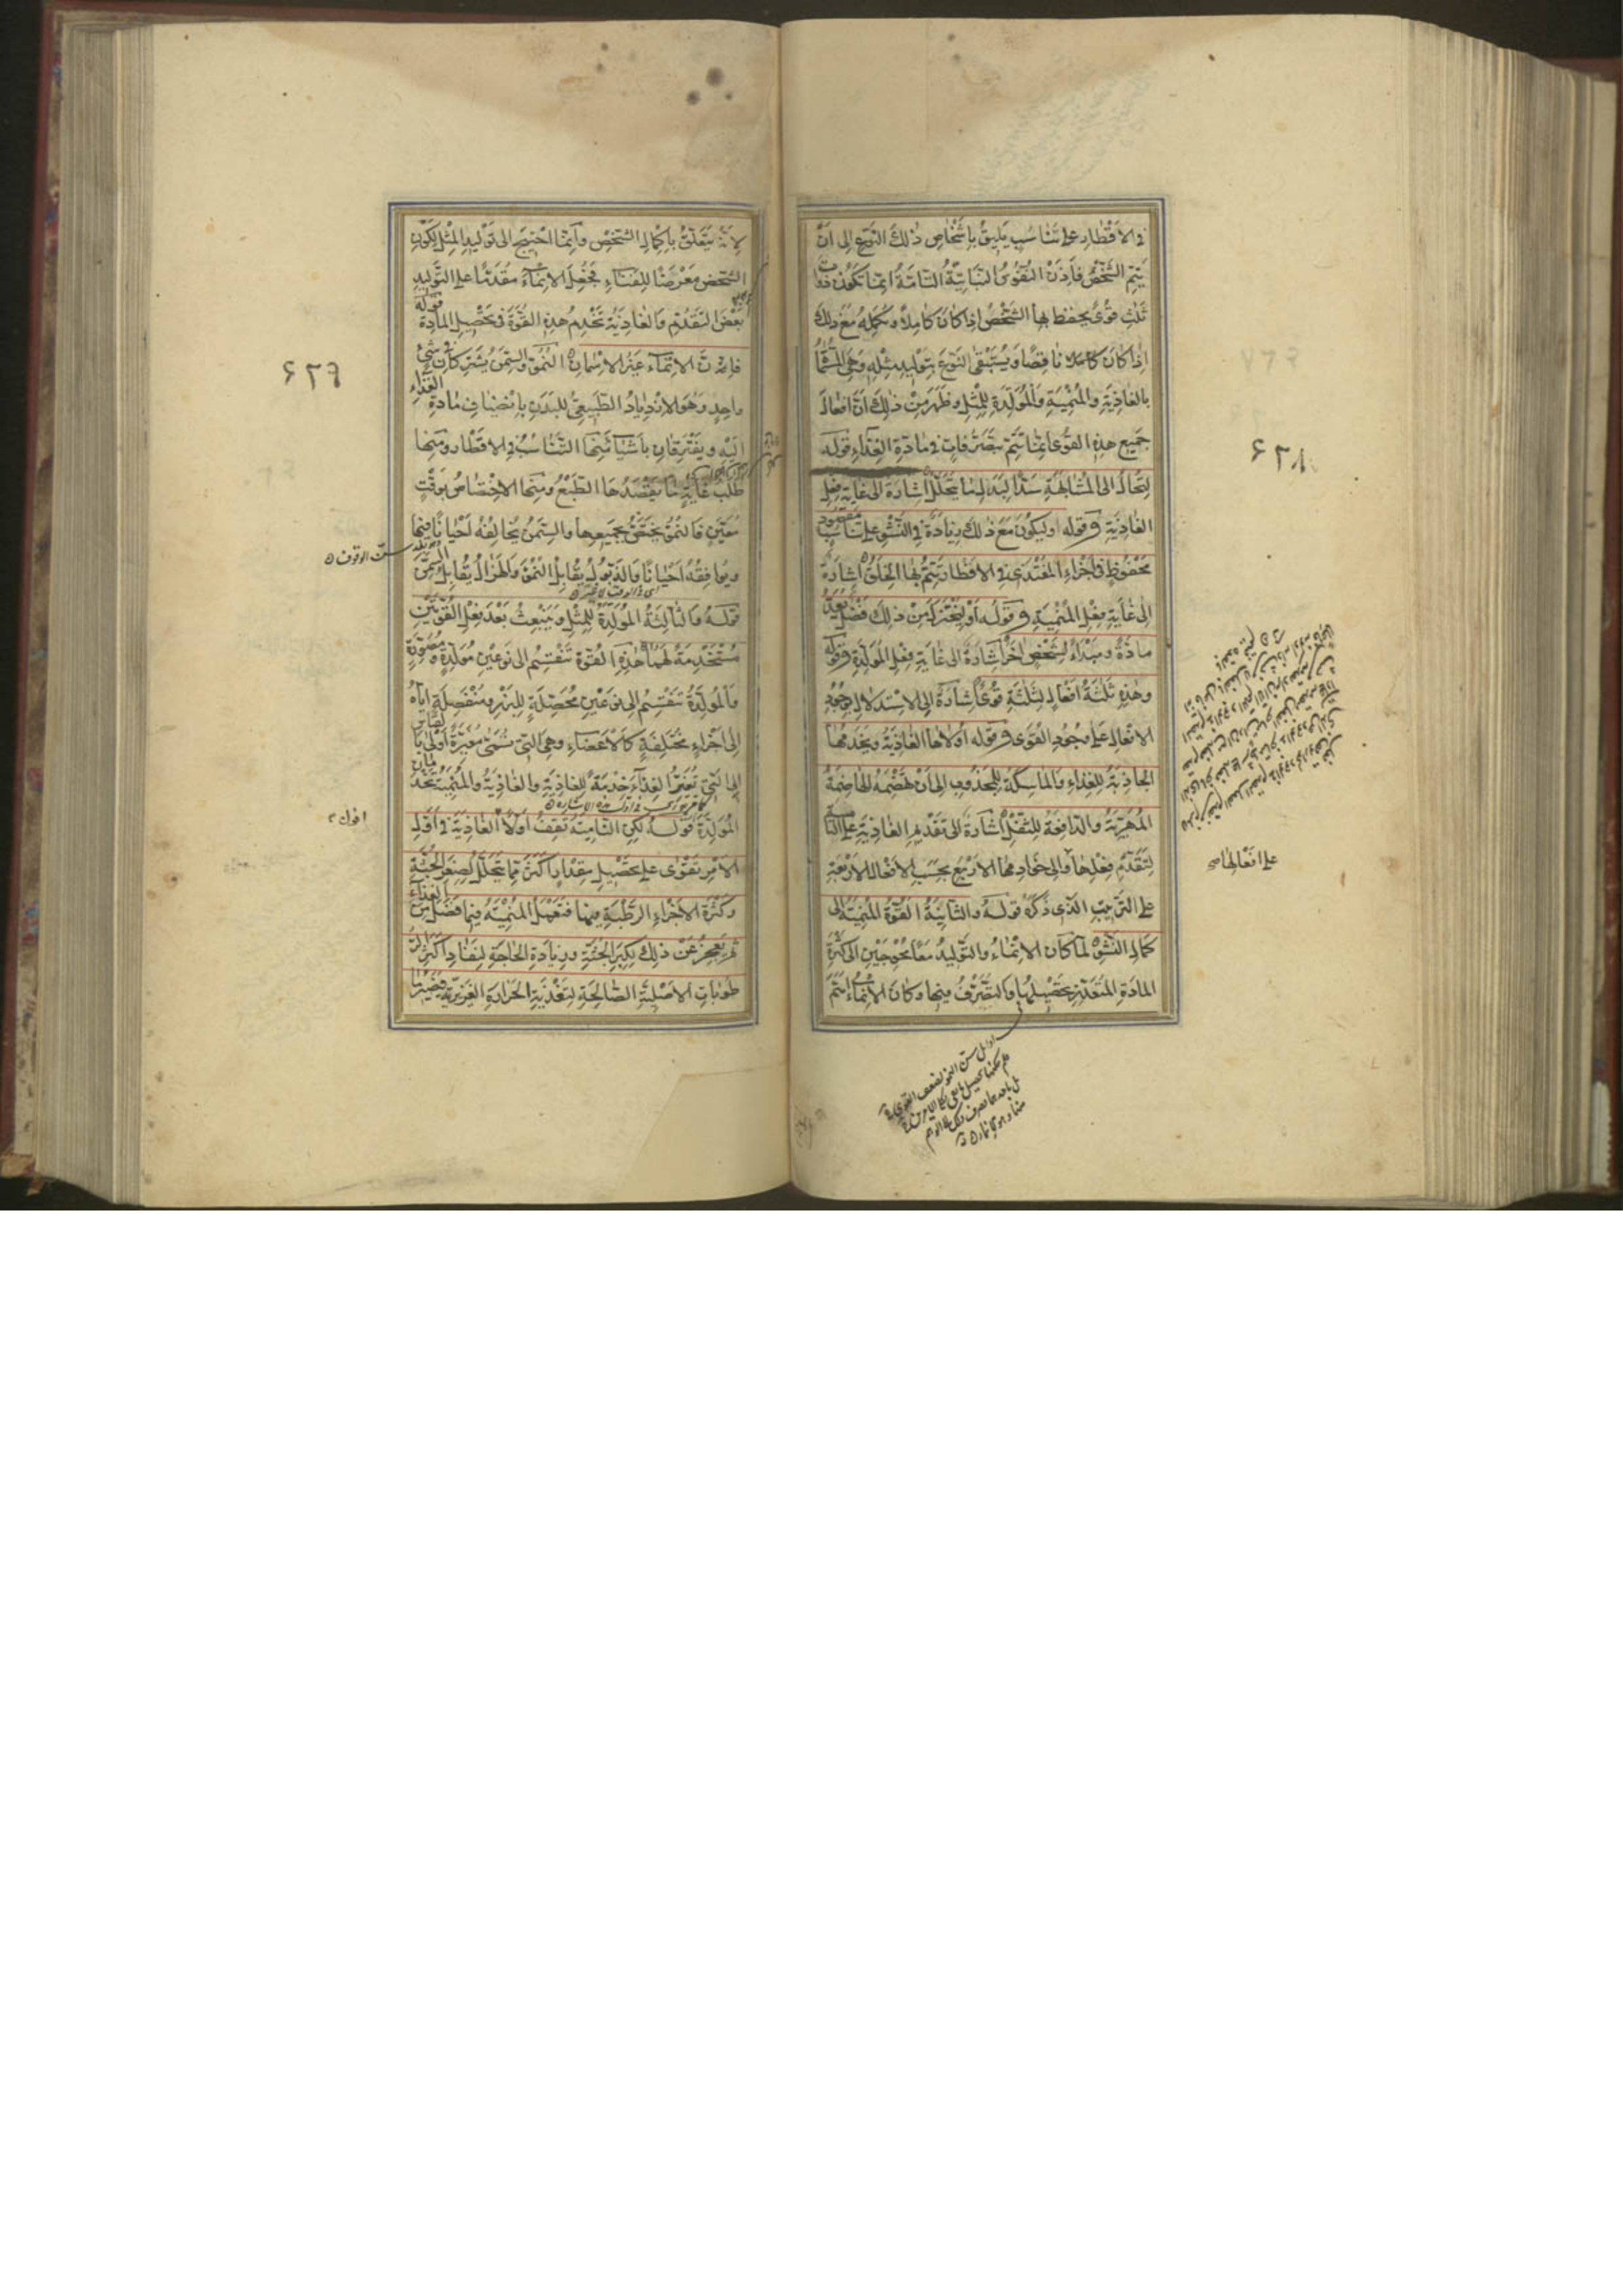 في الاقطار على تناسب يليق باشخاص ذلك النوع الى ان
يتم الشخص فاذن النفوس النباتية التامة انما تكون ذوات
ثلث قوى يحفظ بها الشخص اذا كان كاملا ويكمله مع ذلك
اذا كان ناقصا ويستبقى النوع بتوليد مثله وهى المسماة
بالغاذية والمنمية والمولدة للمثل وظهر من ذلك ان افعال
جميع هذه القوى انما تتم بتصرفات في مادة الغذاء قوله
لتحال الى المشابهة سدا لبدل ما يتحلل اشارة الى غاية فعل
الغاذية وقوله اوليكون مع ذلك زيادة في النشو على تناسب مقصود
محفوظ في اجزاء المغتذى في الاقطار يتم بها الخلق اشارة
الى غاية فعل المنمية وقوله او ليختزل من ذلك فضل يعد
مادة ومبداء لشخص آخر اشارة الى غاية فعل المولدة وقوله
وهذه ثلثة افعال لثلثة قوى اشارة الى الاستدلال بوجود
الافعال على وجود القوى وقوله اولاها الغاذية ويخدمها
الجاذبة للغذاء والماسكة للمجذوب الى ان تهضمه الهاضمة
المغيرة والدافعة للثفل اشارة الى تقديم الغاذية على النامية
لتقدم فعلها والى خوادمها الاربع بحسب الافعال الاربعة
على الترتيب الذى ذكره قوله والثانية القوة المنمية الى
كمال النشو لما كان الانماء والتوليد معا محوجين الى كثرة
المادة المتعذر تحصيلها والتصرف فيها وكان الانماء اهم
٤٢٨
على افعالها صح
لانه يتعلق باكمال الشخص وانما احتيج الى توليد المثل لكون
الشخص معرضا للفناء فجعل الانماء مقدما على التوليد
بعض التقدم والغاذية تخدم هذه القوة في تحصيل المادة قوله
فان الانماء غير الاسمان النمو والسمن يشتركان في شئ
واحد وهو الازدياد الطبيعى للبدن بانضياف مادة الغذاء
اليه ويفترقان باشياء منها التناسب في الاقطار ومنها
طلب غاية ما يقصدها الطبع ومنها الاختصاص بوقت
معين فالنمو يختص بجميعها والسمن يخالفه احيانا فيها
ويوافقه احيانا والذبول يقابل النمو والهزال يقابل السمن
قوله والثالثة المولدة للمثل وينبعث بعد فعل القوتين
مستخدمة لهما هذه القوة تنقسم الى نوعين مولدة ومصورة
والمولدة تنقسم الى نوعين محصلة للبزر ومفصلة اياه
الى اجزاء مختلفة كالاعضاء وهى التى تسمى مغيرة اولى بالقياس
الى التى تغير الغذاء خدمة للغاذية والغاذية والمنمية تخدمان
المولدة قوله لكن النامية تقف اولا الغاذية في اول
الامر تقوى على تحصيل مقدار اكثر مما يتحلل لصغر الجثة
وكثرة الاجزاء الرطبة فيها فتعمل المنمية فيما فضل من الغذاء
ثم يعجز عن ذلك لكبر الجثة وزيادة الحاجة لنفاد اكثر الر
طوبات الاصلية الصالحة لتغذية الحرارة الغريزية فيصير ما
٤٢٩
سن الوقوف
اقول